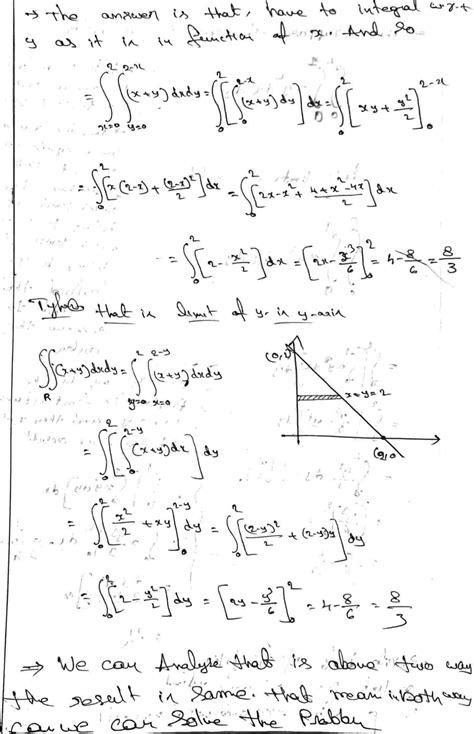 → The answer is that, have to integral w.r.t
y as it is in function of x. And So
= ∫_{x=0}^{2} ∫_{y=0}^{2-x} (x+y) dx dy = ∫_0^2 [∫_0^{2-x} (x+y) dy] dx = ∫_0^2 [xy + y²/2]_0^{2-x}
= ∫_0^2 [x(2-x) + (2-x)²/2] dx = ∫_0^2 [2x-x² + 4+x²-4x/2] dx
= ∫_0^2 [2 - x²/2] dx = [2x - x³/6]_0^2 = 4 - 8/6 = 8/3
that is limit of y is y-axis
∬_R (x+y) dx dy = ∫_{y=0}^{2} ∫_{x=0}^{2-y} (x+y) dx dy
= ∫_0^2 [∫_0^{2-y} (x+y) dx] dy
= ∫_0^2 [x²/2 + xy]_0^{2-y} dy = ∫_0^2 [(2-y)²/2 + (2-y)y] dy
= ∫_0^2 [2 - y²/2] dy = [2y - y³/6]_0^2 = 4 - 8/6 = 8/3
x+y=2
⇒ We can Analyse that is above two way
the result is Same. that mean in both way
can we can Solve the Problem